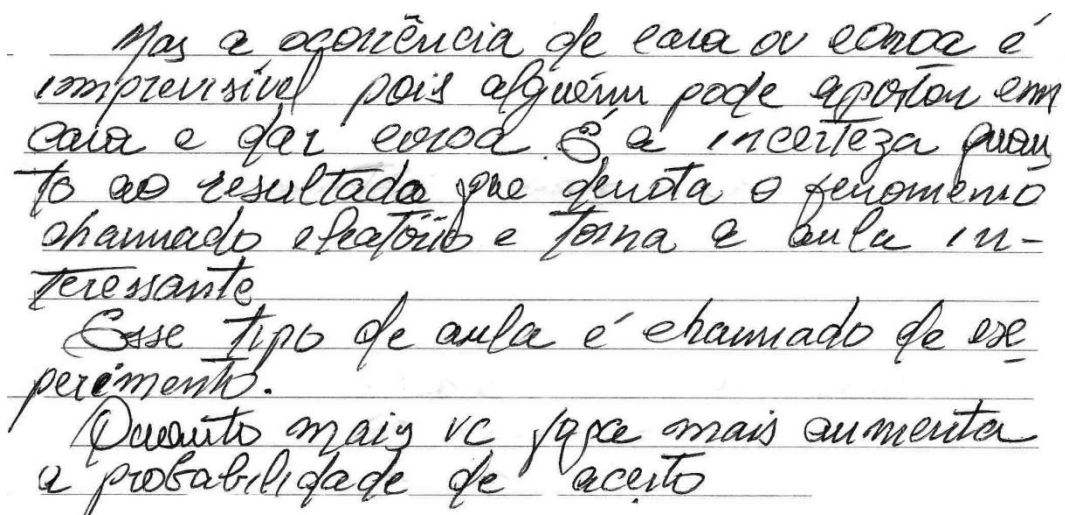 Mas a ocorrência de cara ou coroa é
imprevisível pois alguém pode apostar em
cara e dar coroa. É a incerteza quan
to ao resultado que denota o fenomeno
chamado aleatório e torna a aula in-
teressante
Esse tipo de aula é chamado de ex
perimento.
Quanto mais vc joga mais aumenta
a probabilidade de acerto